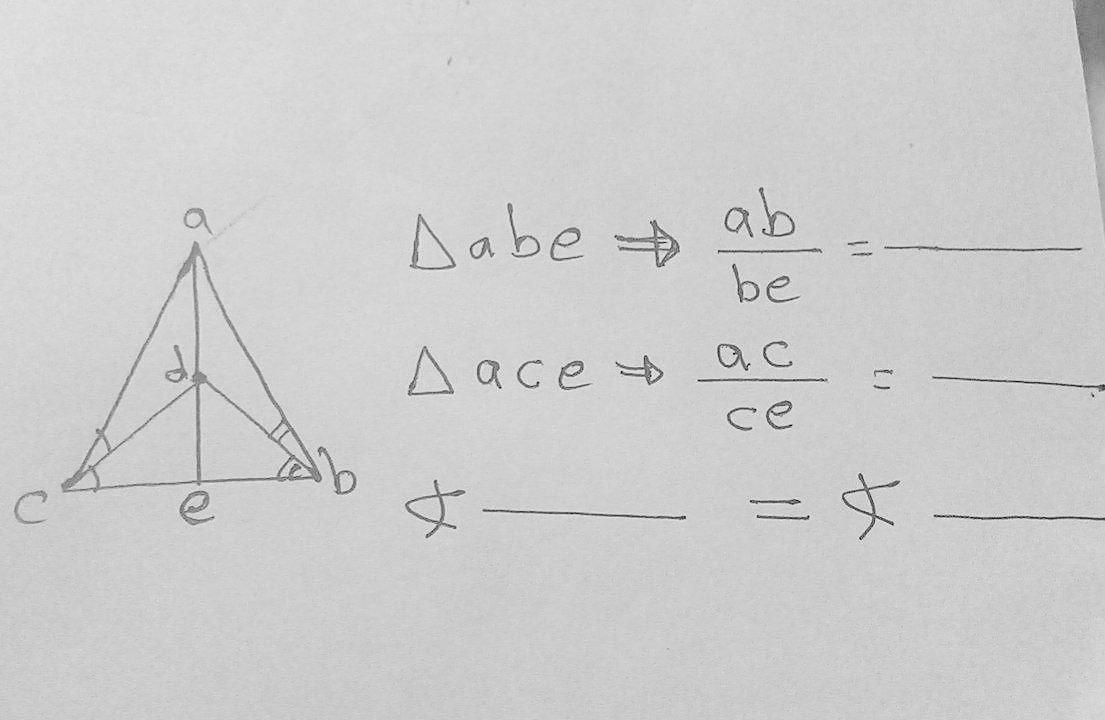 a
d
c
e
b
Δabe ⇒ ab/be = ______
Δace ⇒ ac/ce = ______
∢ ______ = ∢ ______